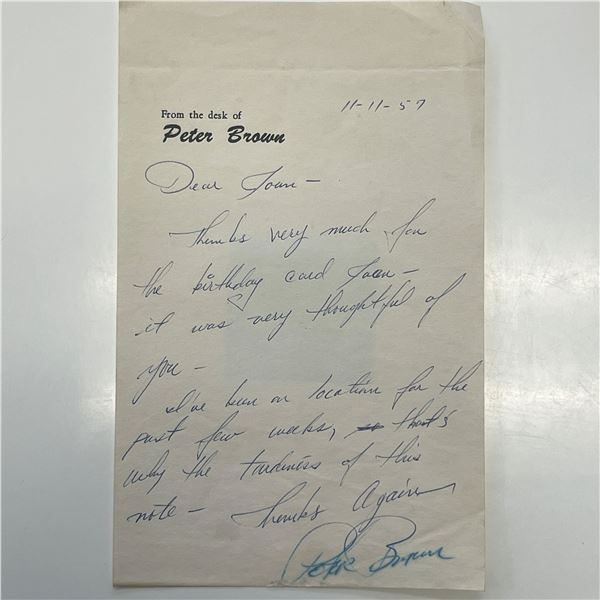 11-11-57
From the desk of
Peter Brown
Dear Joan -
Thanks very much for
the birthday card Joan -
it was very thoughtful of
you -
I've been on location for the
past few weeks, that's
why the tardiness of this
note - Thanks Again,
Peter Brown